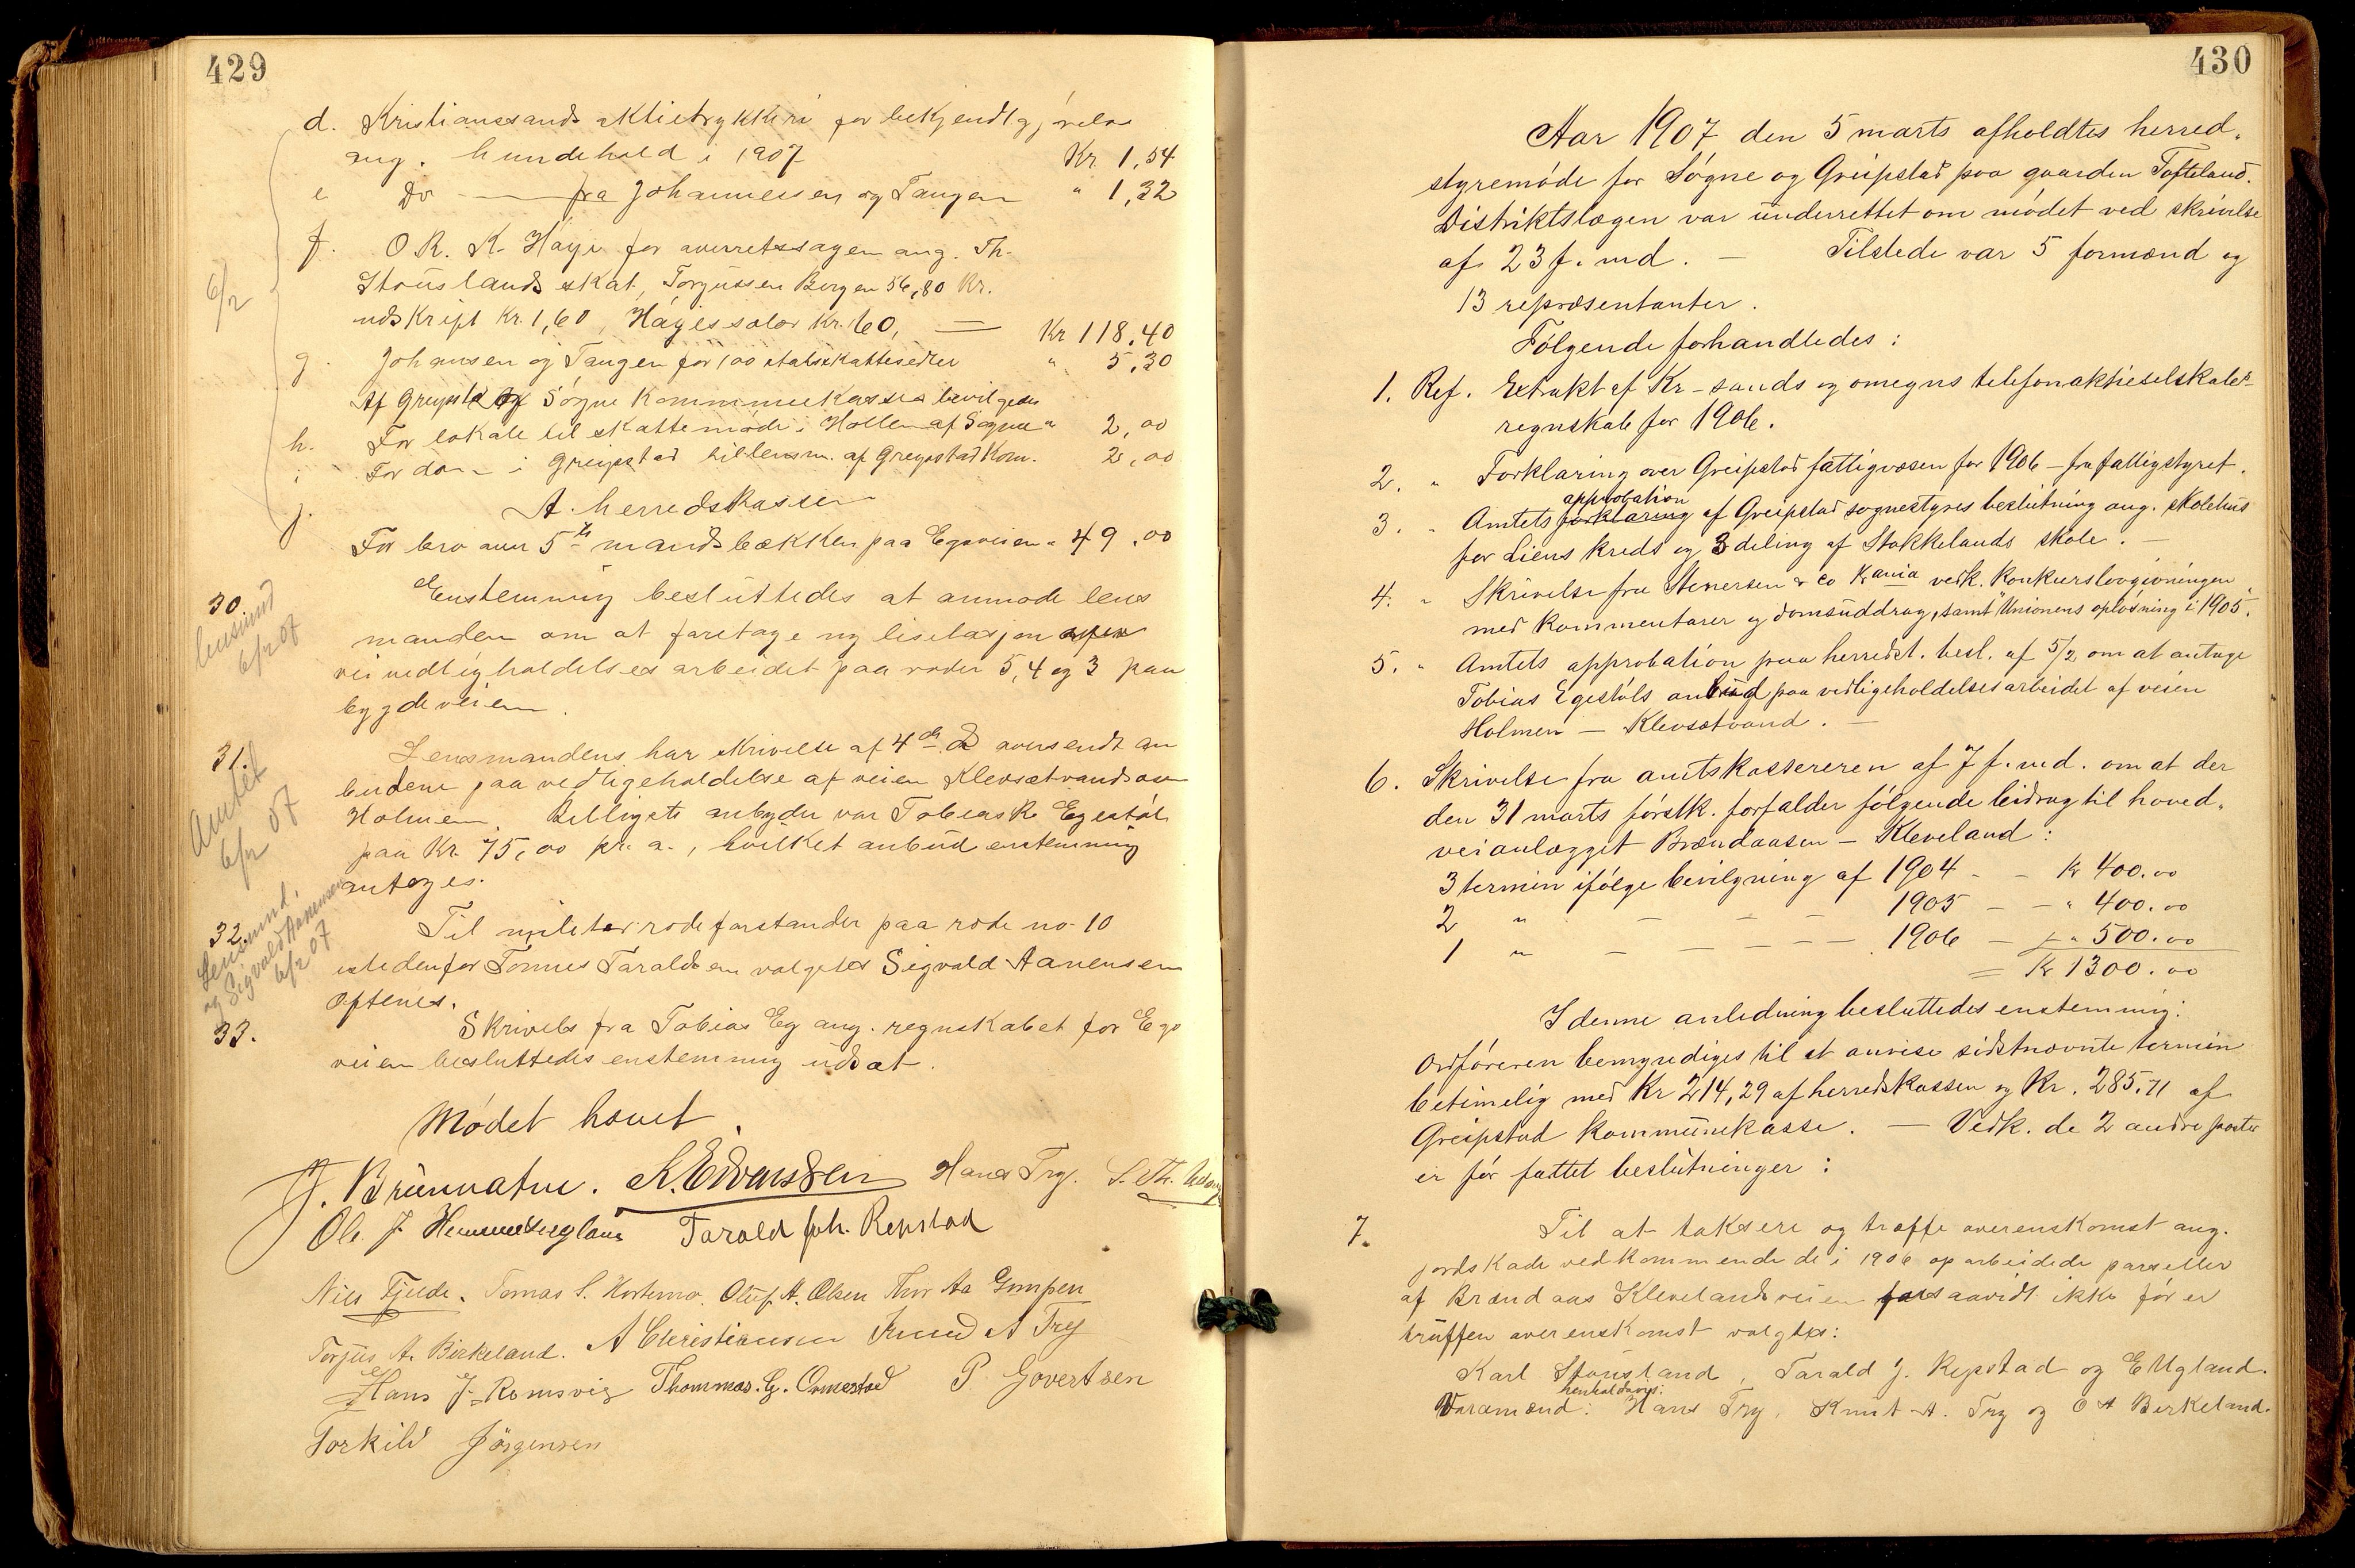 429
d. Kristianssands aktietrykkeri for bekjendtgjørelse
ang. hundehold i 1907 Kr. 1,54
e Do — fra Johannesen og Tangen " 1,32
f. O.R. K. Høye for overretssagen ang. Th.
Stouslands skat, Torgussen Bergen 56,80 Kr.
udskrift Kr. 1,60, Høyes salær Kr. 60, — Kr 118,40
g. Johansen og Tangen for 100 statsskattesedler " 5,30
Af Greipstad og Søgne Kommunekasser bevilgedes
h. For lokale til skattemøde i Høllen af Søgne " 2,00
i For do – i Greipstad til lensm. af Greipstad Kom. 2,00
j. A. herredskassen
For bro over 5te mandsbækken paa Egsveien " 49,00
6/2
30. Enstemmig besluttedes at anmode lens
manden om at foretage ny lisitasjon over
veivedligholdelsesarbeidet paa roder 5, 4 og 3 paa
bygdeveien.
lensmd
6/2 07
31. Lensmanden har skrivelse af 4de ds oversendt an
budene paa vedligeholdelse af veien Klevsætvand
Holmen. Billigste anbyder var Tobias R. Egestøl
paa Kr. 75,00 pr. a., hvilket anbud enstemmig
antoges.
Amtet
6/2 07
32. Til militær rodeforstander paa rode no 10
istedenfor Tønnes Taraldsen valgtes Sigvald Aanensen
Oftenes.
Lensmnd.
og Sigvald Aanensen
6/2 07
33. Skrivelse fra Tobias Eg ang. regnskabet for Egs
veien besluttedes enstemmig udsat.
Mødet hævet.
J. Brünnatne. K. Edvardsen Hans Try.
Ole J. Hemmestegland Tarald Joh. Repstad
Nils Fjelde. Tomas S. Hortemo. Oluf A. Olsen Thor Aa Gumpen
Torjus A. Birkeland. A Christiansen Knud A Try
Hans J. Romsvig Thommas. G. Omestad P. Govertsen
Torkild Jörgensen
430
Aar 1907 den 5 marts afholdtes herred-
styremøde for Søgne og Greipstad paa gaarden Tofteland.
Distriktslægen var underrettet om mødet ved skrivelse
af 23 f. md. — Tilstede var 5 formænd og
13 repræsentanter.
Følgende forhandledes:
1. Ref. Extrakt af Kr-sands og omegns telefonaktieselskabs
regnskab for 1906.
2. " Forklaring over Greipstad fattigvæsen for 1906 – fra fattigstyret.
approbation
3. " Amtets forklaring af Greipstad sognestyres beslutning ang. skolehus
for Liens kreds og 3deling af Stokkelands skole. —
4. " Skrivelse fra Stenersen & Co Kr.ania vedk. Konkurslovgivningen
med kommentarer og domsuddrag, samt "Unionens opløsning i 1905".
5. " Amtets approbation paa herredst. besl. af 5/2 om at antage
Tobias Egestøls anbud paa vedligeholdelsesarbeidet af veien
Holmen – Klevsætvand. —
6. Skrivelse fra amtskassereren af 7 f. md. om at der
den 31 marts førstk. forfalder følgende bidrag til hoved-
veianlægget Brændaasen – Kleveland:
3 termin ifølge bevilgning af 1904 – – Kr 400.00
2 " – – – 1905 – – " 400.00
1 " – – – – – 1906 – " 500.00
= Kr 1300.00
I denne anledning besluttedes enstemmig:
Ordføreren bemyndiges til at anvise sidstnævnte termin
betimelig med Kr 214,29 af herredskassen og Kr. 285.71 af
Greipstad kommunekasse. — Vedk. de 2 andre poster
er før fattet beslutninger:
7. Til at taksere og træffe overenskomst ang.
jordskade vedkommende de i 1906 oparbeidede parseller
af Brændaas Klevelandsveien forsaavidt ikke før er
truffen overenskomst valgtes:
Karl Stousland, Tarald J. Repstad og E Ugland.
henholdsvis:
Varamænd: Hans Try, Knut A. Try og O A Birkeland.